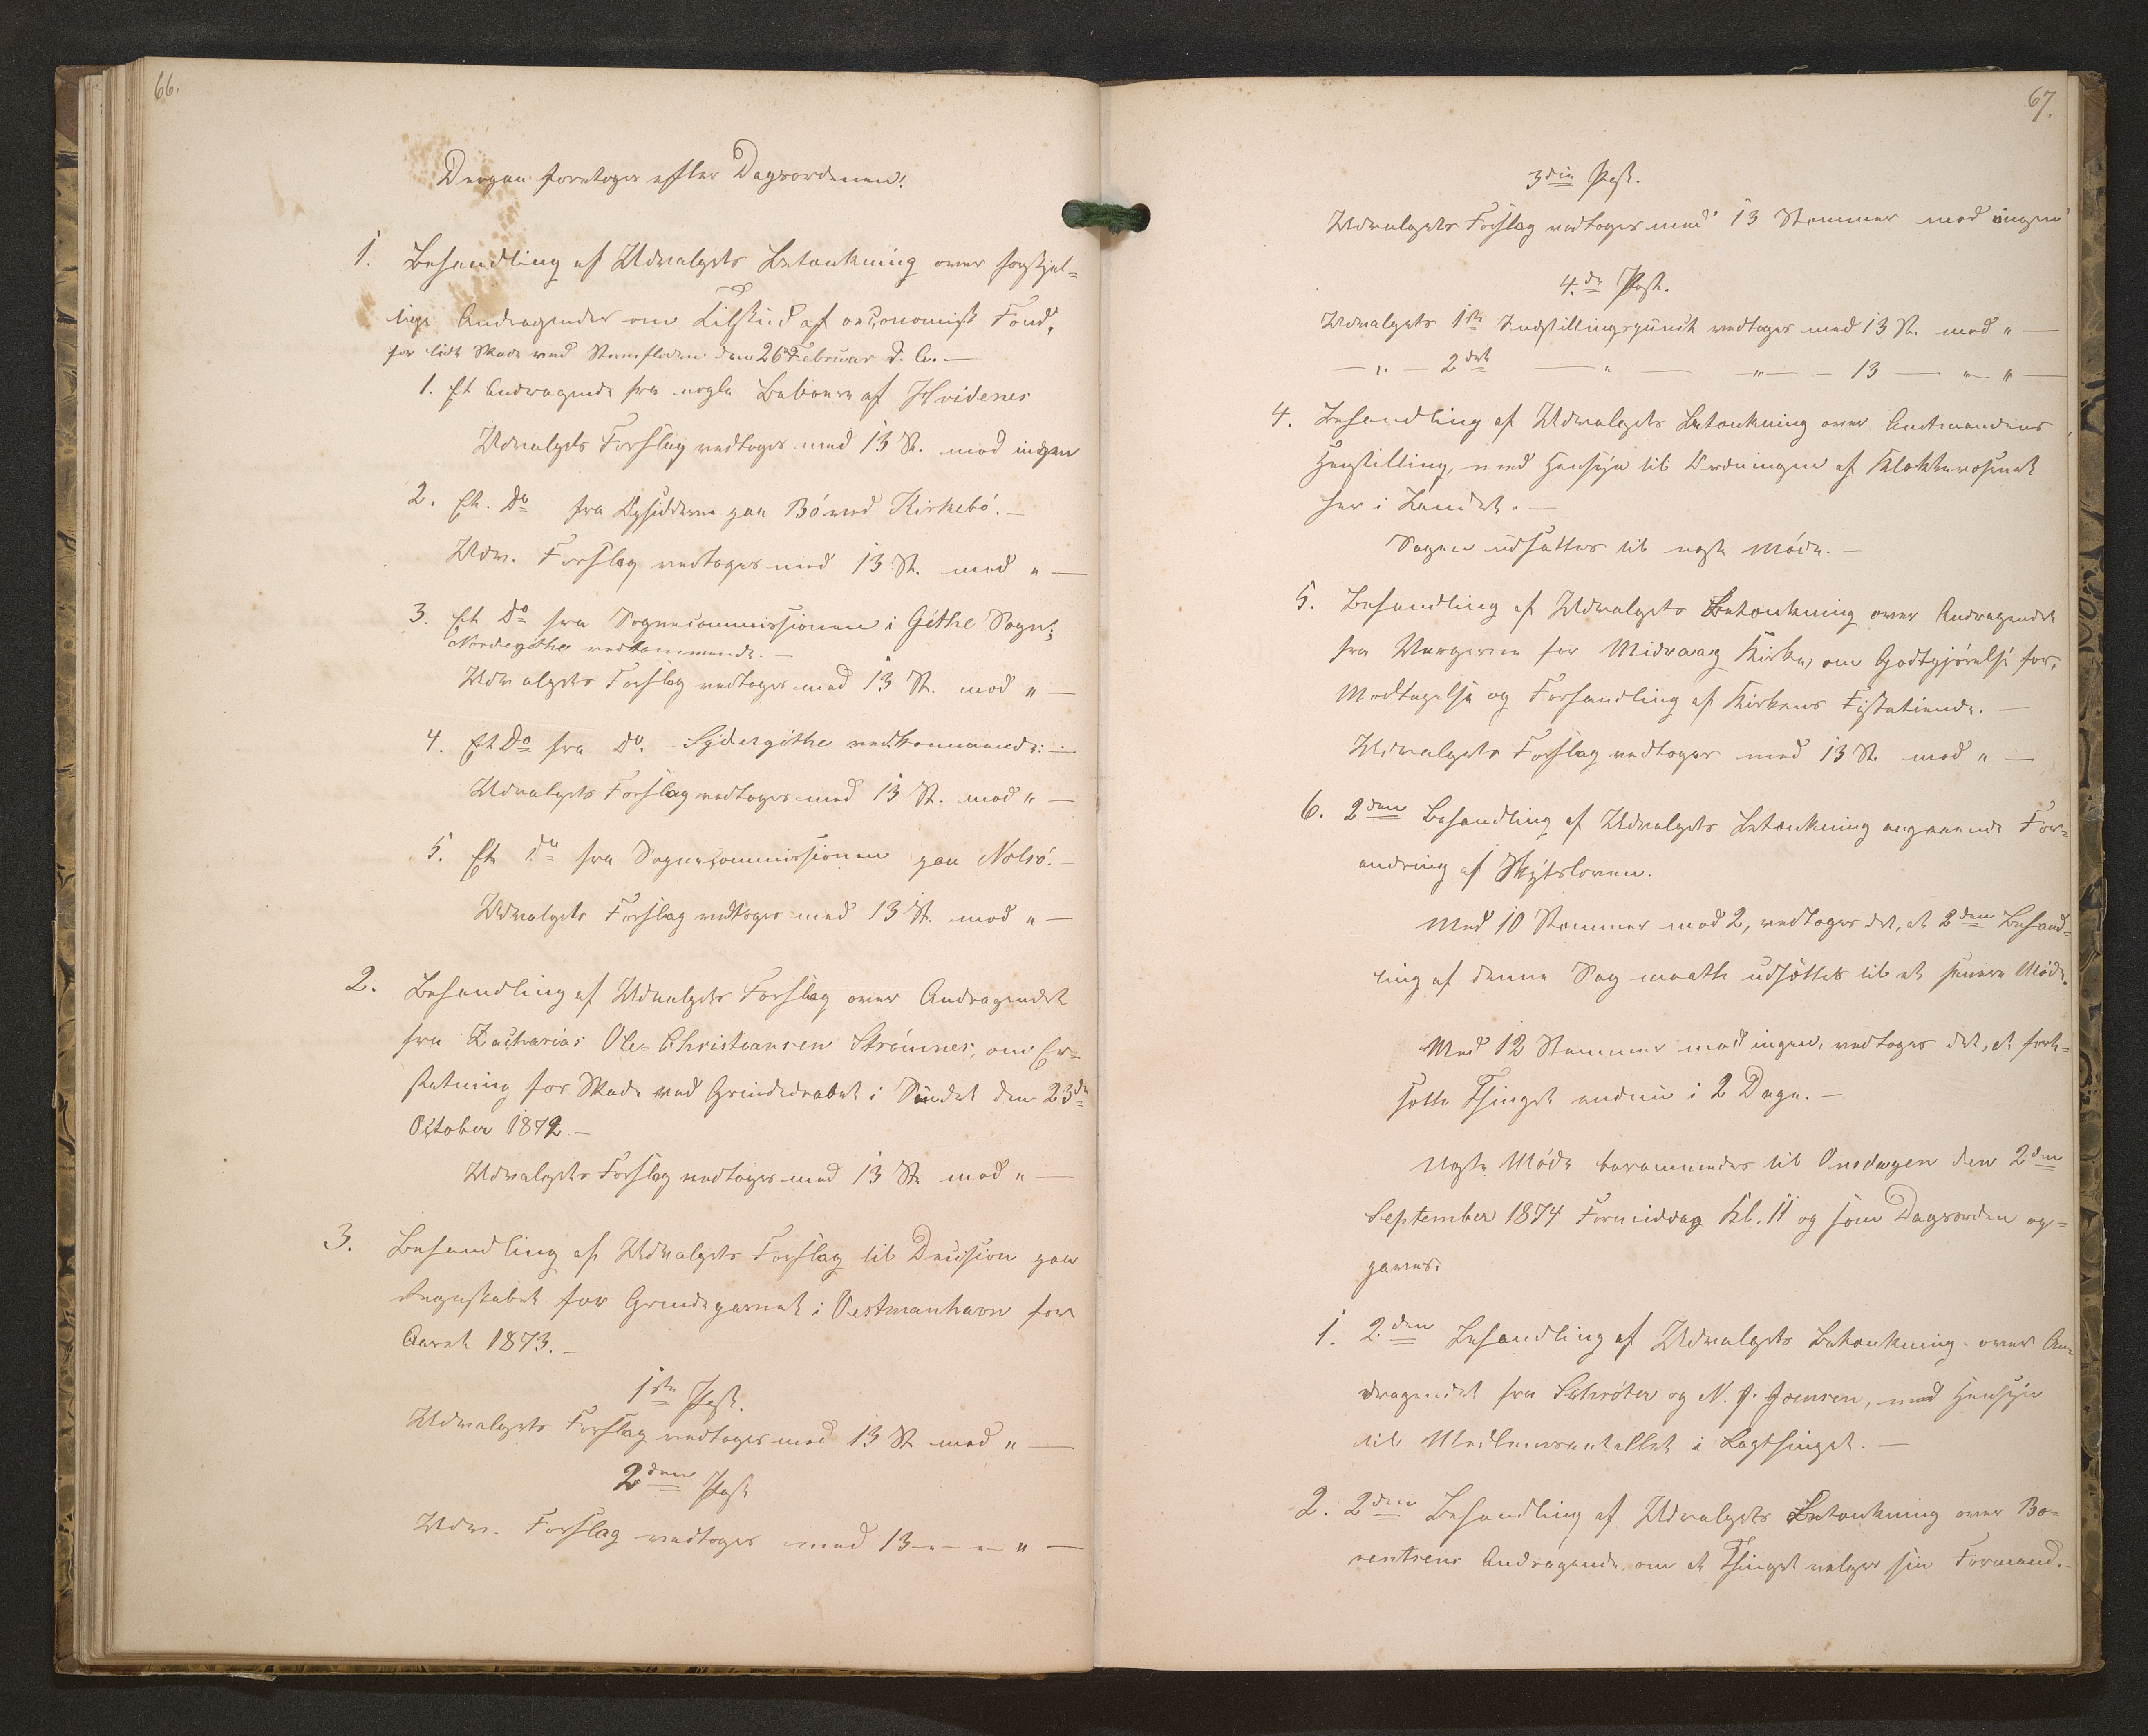 66.
Derpaa foretoges efter Dagsordenen:
1. Behandling af Udvalgets Betænkning over forskjel=
lige Andragender om Tilskud af oeconomisk Fond,
for lidt Skade ved Stormfloden den 26 Februar d. A. —
1. Et Andragende fra nogle Beboere af Hvidenes
Udvalgets Forslag vedtoges med 13 St. mod ingen
2. Et. Do fra Opsidderne paa Bö ved Kirkebö. —
Udv. Forslag vedtoges med 13 St. mod " —
3. Et Do fra Sognecommissionen i Göthe Sogn;
Nordregöthe vedkommende. —
Udvalgets Forslag vedtoges med 13 St. mod " —
4. Et Do fra Do. Sydregöthe vedkommende: —
Udvalgets Forslag vedtoges med 13 St. mod " —
5. Et do fra Sognecommissionen paa Nolsö. —
Udvalgets Forslag vedtoges med 13 St. mod " —
2. Behandling af Udvalgets Forslag over Andragendet
fra Zacharias Ole Christiansen Strömnes, om Er=
statning for Skade ved Grindedrabet i Sundet den 23de
October 1872. —
Udvalgets Forslag vedtoges med 13 St. mod " —
3. Behandling af Udvalgets Forslag til Decision paa
Regnskabet for Grindegarnet i Vestmanhavn for
Aaret 1873. —
1ste Post.
Udvalgets Forslag vedtoges med 13 St. mod " —
2den Post
Udv. Forslag vedtoges med 13 — " — " —
67.
3die Post.
Udvalgets Forslag vedtoges med 13 Stemmer mod ingen
4.de Post.
Udvalgets 1ste Indstillingspunct vedtoges med 13 St. mod " —
— " — 2det — " — — " — — 13 — " — " —
4. Behandling af Udvalgets Betænkning over Amtmandens
Henstilling, med Hensyn til Ordningen af Klokkervæsenet
her i Landet. —
Sagen udsattes til næste Møde. —
5. Behandling af Udvalgets Betænkning over Andragendet
fra Værgerne for Midvaag Kirke, om Godtgjörelse for,
Modtagelse og Forhandling af Kirkens Fisketiende. —
Udvalgets Forslag vedtoges med 13 St. mod " —
6. 2den Behandling af Udvalgets Betænkning angaaende For=
andring af Skydsloven.
Med 10 Stemmer mod 2, vedtoges det, at 2den Behand=
ling af denne Sag maatte udsættes til et senere Møde.
Med 12 Stemmer mod ingen, vedtoges det, at fort=
sætte Thinget endnu i 2 Dage. —
Næste Møde berammedes til Onsdagen den 2den
September 1874 Formiddag Kl. 11 og som Dagsorden op=
gaves:
1. 2den Behandling af Udvalgets Betænkning over An=
dragendet fra Schröter og N. J. Joensen, med Hensyn
til Medlemsantallet i Lagthinget. —
2. 2den Behandling af Udvalgets Betænkning over Bæ=
rentsens Andragende, om at Thinget vælger sin Formand. —